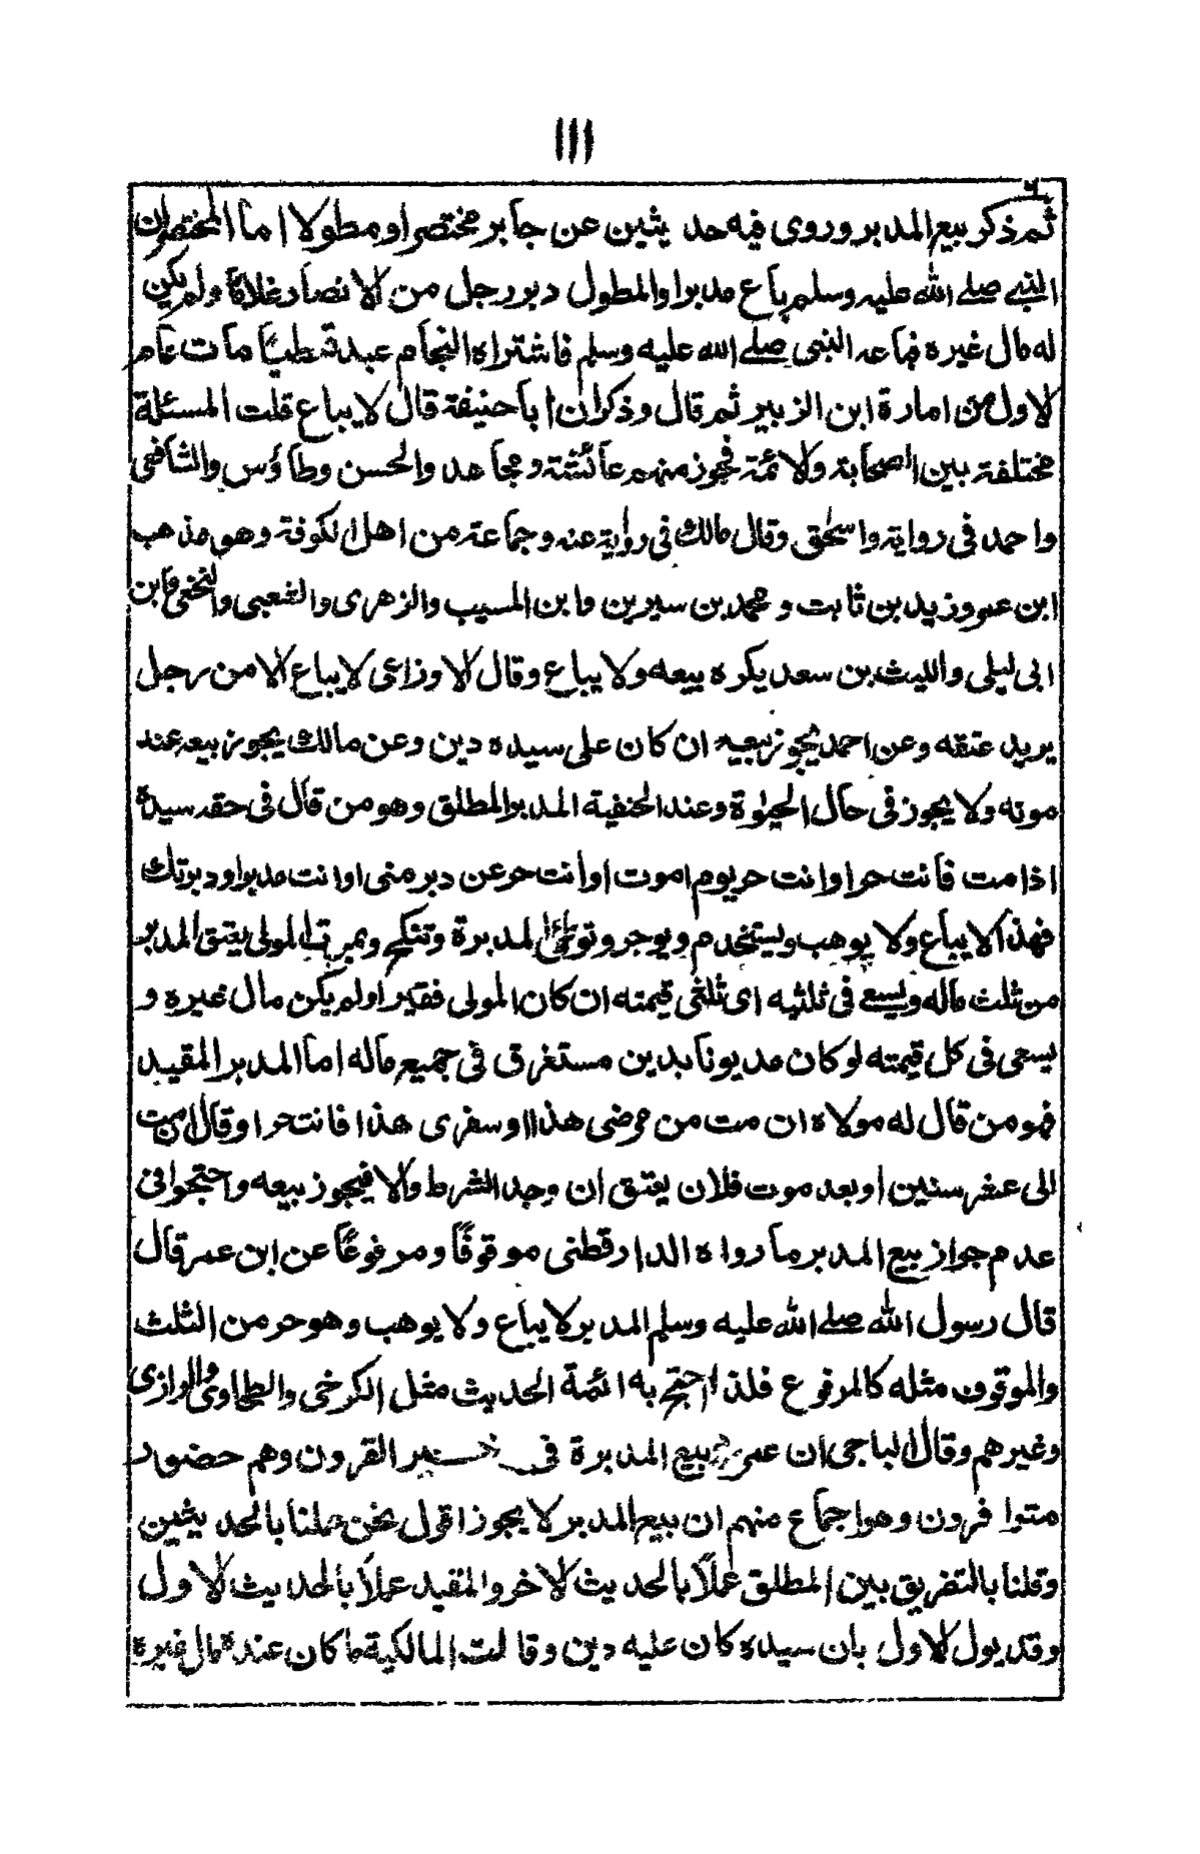 ١١١
ثم ذكر بيع المدبر وروى فيه حديثين عن جابر مختصرا ومطولا اما المختصر ان
النبي صلے الله عليه وسلم باع مدبرا والمطول دبر رجل من الانصار غلاما ولم يكن
له مال غيره فباعه النبى صلے الله عليه وسلم فاشتراه النحام عبد قبطيا مات عام
الاول من امارة ابن الزبير ثم قال وذكر ان ابا حنيفة قال لا يباع قلت المسئلة
مختلفة بين الصحابة والائمة فجوز منهم عائشة ومجاهد والحسن وطاؤس والشافعى
واحمد فى رواية واسحٰق وقال مالك فى رواية عنه وجماعة من اهل الكوفة وهو مذهب
ابن عمر وزيد بن ثابت ومحمد بن سيرين وابن المسيب والزهرى والشعبى والنخعى وابن
ابى ليلى والليث بن سعد يكره بيعه ولا يباع وقال الاوزاعى لا يباع الا من رجل
يريد عتقه وعن احمد يجوز بيعه ان كان على سيده دين وعن مالك يجوز بيعه عند
موته ولا يجوز فى حال الحيٰوة وعند الحنفية المدبر المطلق وهو من قال فى حقه سيده
اذا مت فانت حر او انت حر يوم اموت او انت حر عن دبر منى او انت مدبر او دبرتك
فهذا لا يباع ولا يوهب ويستخدم ويوجر وتوطأ المدبرة وتنكح وبموت المولى يعتق المدبر
من ثلث ماله ويسعے فى ثلثيه اى ثلثى قيمته ان كان المولى فقيرا ولم يكن مال غيره و
يسعى فى كل قيمته لو كان مديونا بدين مستغرق فى جميع ماله اما المدبر المقيد
فهو من قال له مولاه ان مت من مرضى هذا او سفرى هذا فانت حر او قال ان مت
الى عشر سنين او بعد موت فلان يعتق ان وجد الشرط والا فيجوز بيعه واحتجوا فى
عدم جواز بيع المدبر ما رواه الدارقطنى موقوفًا ومرفوعًا عن ابن عمر قال
قال رسول الله صلے الله عليه وسلم المدبر لا يباع ولا يوهب وهو حر من الثلث
والموقوف مثله كالمرفوع فلذا احتج به ائمة الحديث مثل الكرخى والطحاوى والرازى
وغيرهم وقال الباجى ان عمر رد بيع المدبرة فى خير القرون وهم حضور
متوافرون وهو اجماع منهم ان بيع المدبر لا يجوز اقول نحن عملنا بالحديثين
وقلنا بالتفريق بين المطلق عملاً بالحديث الاخر والمقيد عملاً بالحديث الاول
وقد يول الاول بان سيده كان عليه دين وقالت المالكية ما كان عنده مال غيره